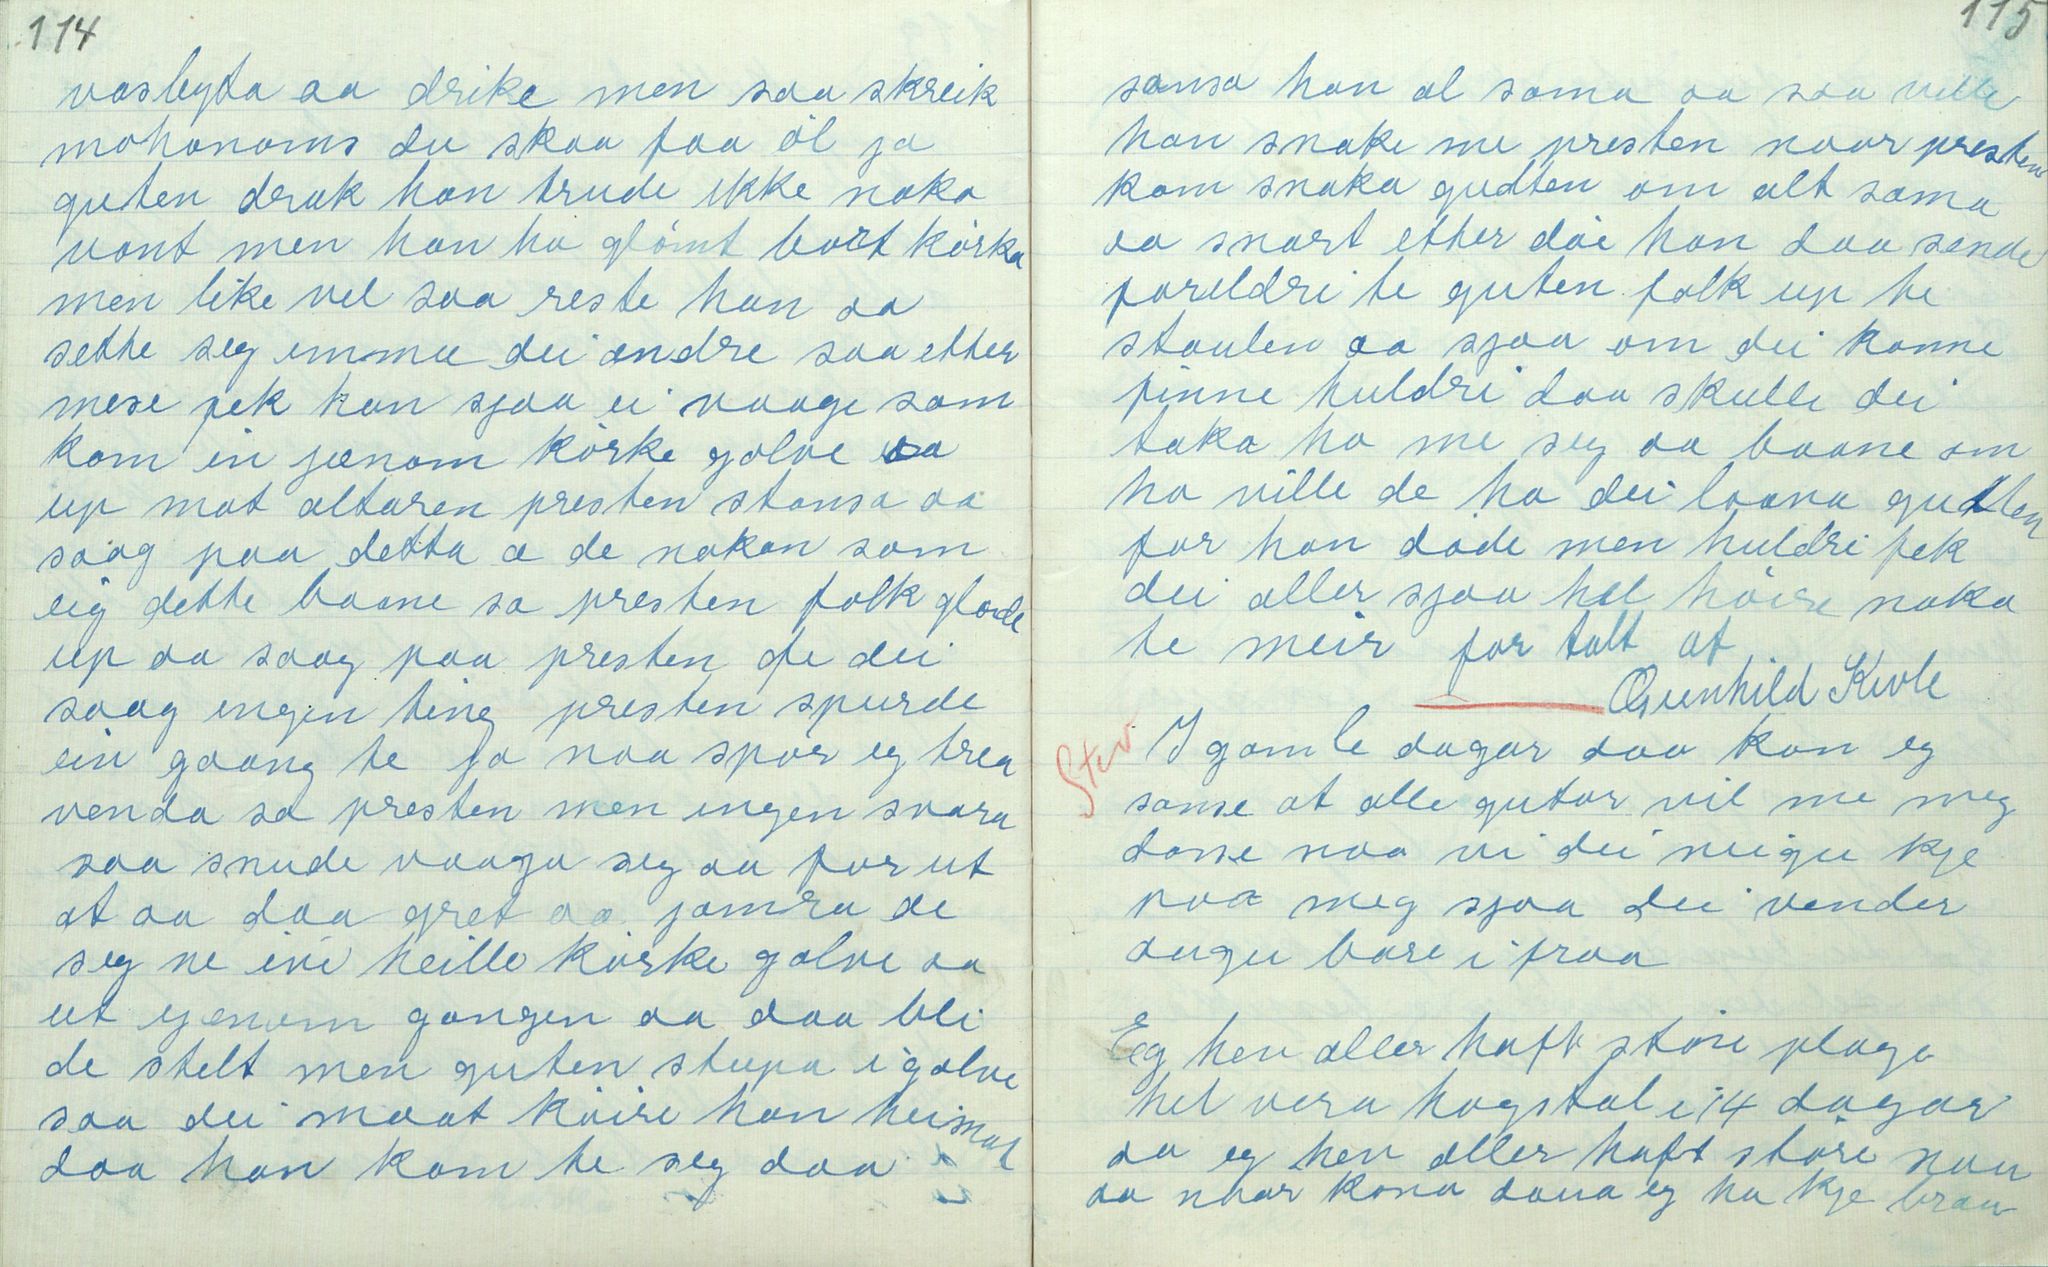 114
vasbytta aa drike men saa skreik
mohonoms du skaa faa öl ja
guten drak han trude ikke noka
vont men han ha glömt bort körka
men like vel saa reste han aa
sette seg imma dei andre saa etter
mese fek han sjaa ei vaage som
kom in jænom körke golve aa
up mot altaren presten stansa aa
saag paa detta a de nokon som
eig dette baane sa presten folk glode
up aa saag paa presten fe dei
saag ingen ting presten spurde
ein gaang te ja naa spör eg trea
venda sa presten men ingen svara
saa snude vaaga seg aa for ut
at aa daa gret aa jamra de
seg ne ivi heille körke golve aa
ut gjenom gangen aa daa blei
de stelt men guten stupa i golve
saa dei maat köire han heimat
daa han kom te seg daa
115
sansa han al sama aa saa ville
han snake me presten naar presten
kom snaka gudten om alt sama
aa snart etter döe han daa sende
foreldri te guten folk up te
staulen aa sjaa om dei konne
finne huldri daa skulle dei
taka ho me seg aa baane om
ho ville de ha dei laava gudten
for han döde men huldri fek
dei aller sjaa hel höire noka
te meir for talt at
Gunhild Kivle
Stev
I gamle dagar daa kan eg
sanse at alle gutar vil me meg
danse naa vi dei neigu kje
paa meg sjaa dei vender
augu bare i fraa
Eg hev aller haft störe plage
hel vera hogstal i 14 dagar
aa eg hev aller haft störe nau
aa naar kona daua eg ha kje brau